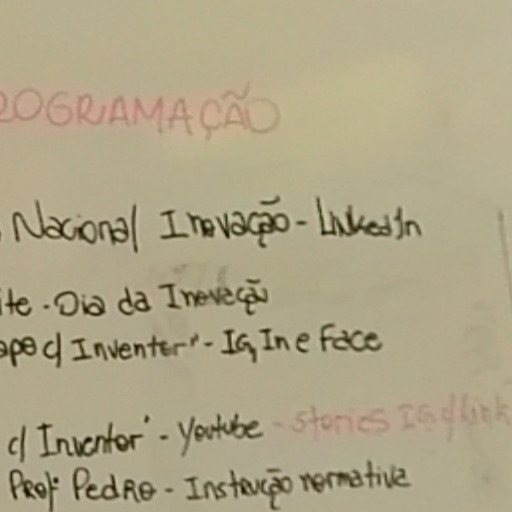 ROGRAMAÇÃO
Nacional Inovação - LinkedIn
ite - Dia da Inovação
ape c/ Inventor" - IG, In e Face
c/ Inventor" - Youtube - stories IG c/ link
Prof. Pedro - Instrução normativa